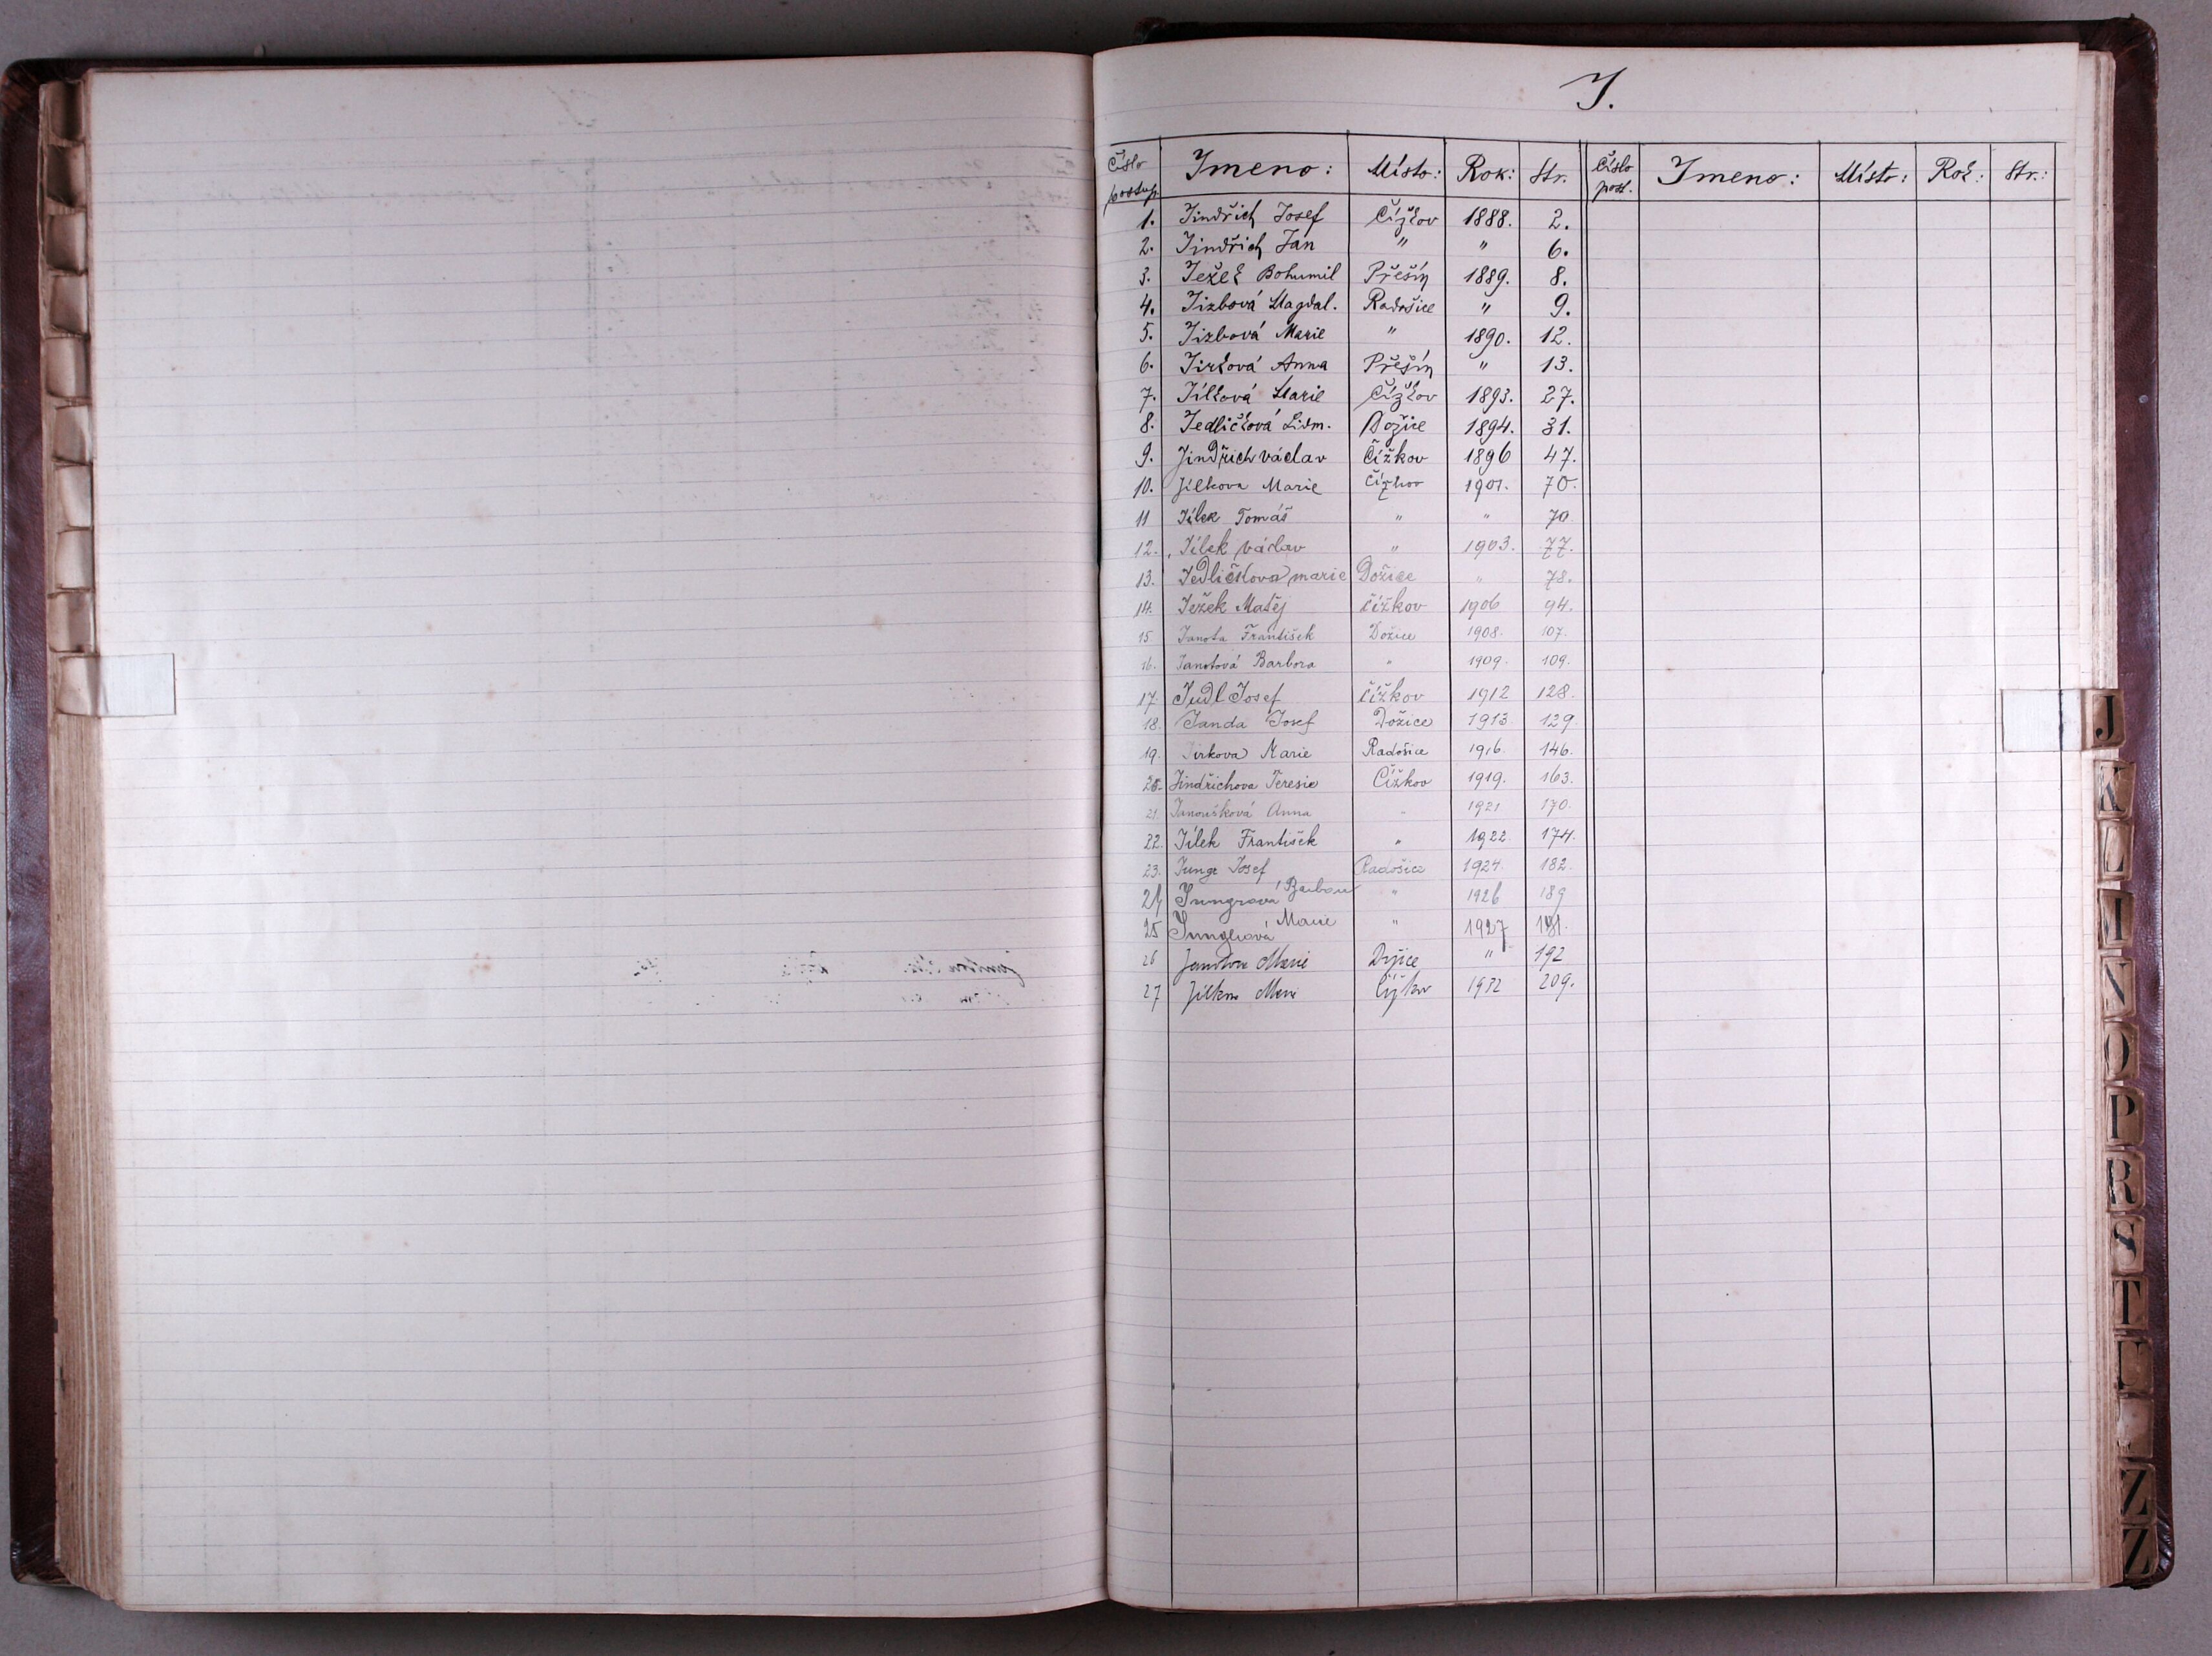 J.
Číslo postup. Jmeno: Místo: Rok: Str. Číslo post. Jmeno: Místo: Rok: Str.:
1. Jindřich Josef Čížkov 1888. 2.
2. Jindřich Jan " " 6.
3. Ježek Bohumil Přešín 1889. 8.
4. Jizbová Magdal. Radošice " 9.
5. Jizbová Marie " 1890. 12.
6. Jirková Anna Přešín " 13.
7. Jílková Marie Čížkov 1893. 27.
8. Jedličková Lidm. Dožice 1894. 31.
9. Jindřich václav Čížkov 1896 47.
10. Jílkova Marie Čížkov 1901. 70.
11 Jílek Tomáš " " 70
12. Jílek václav " 1903. 77.
13. Jedličkova marie Dožice " 78.
14. Ježek Matěj Čížkov 1906 94.
15. Janota František Dožice 1908. 107.
16. Janotová Barbora " 1909. 109.
17. Judl Josef Čížkov 1912 128.
18. Janda Josef Dožice 1913 129
19. Jirkova Marie Radošice 1916. 146.
20. Jindřichova Teresie Čížkov 1919. 163.
21. Janoušková Anna " 1921 170.
22. Jílek František " 1922. 174.
23. Junge Josef Radošice 1924. 182.
24 Jungrová " 1926 189
25 Marie " 1927
26 Janotova Marie Dožice " 192
27 Jílkova Marie Čížkov 1932 209.
J
K
L
M
N
O
P
R
S
T
Z
Z